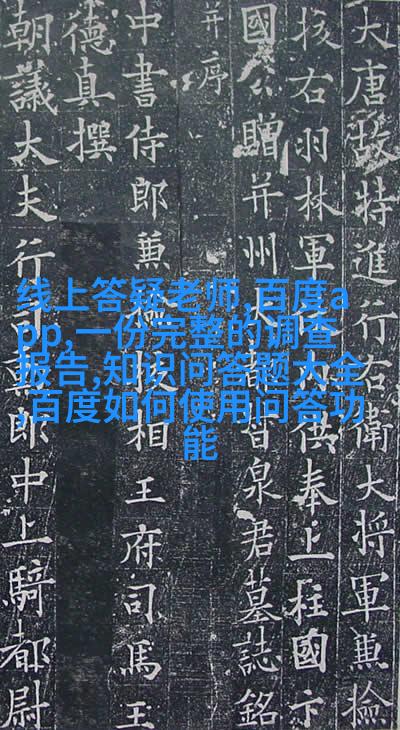 大唐故特進行右衛大將軍兼檢
校右羽林軍仗內供奉上柱國卞
國公贈并州大都督泉君墓誌銘
并序
中書侍郎兼檢校相王府司馬王
德真撰
朝議大夫行司勳郎中上騎都尉
线上答疑老师,百度a
pp,一份完整的调查
报告,知识问答题大全
,百度如何使用问答功
能